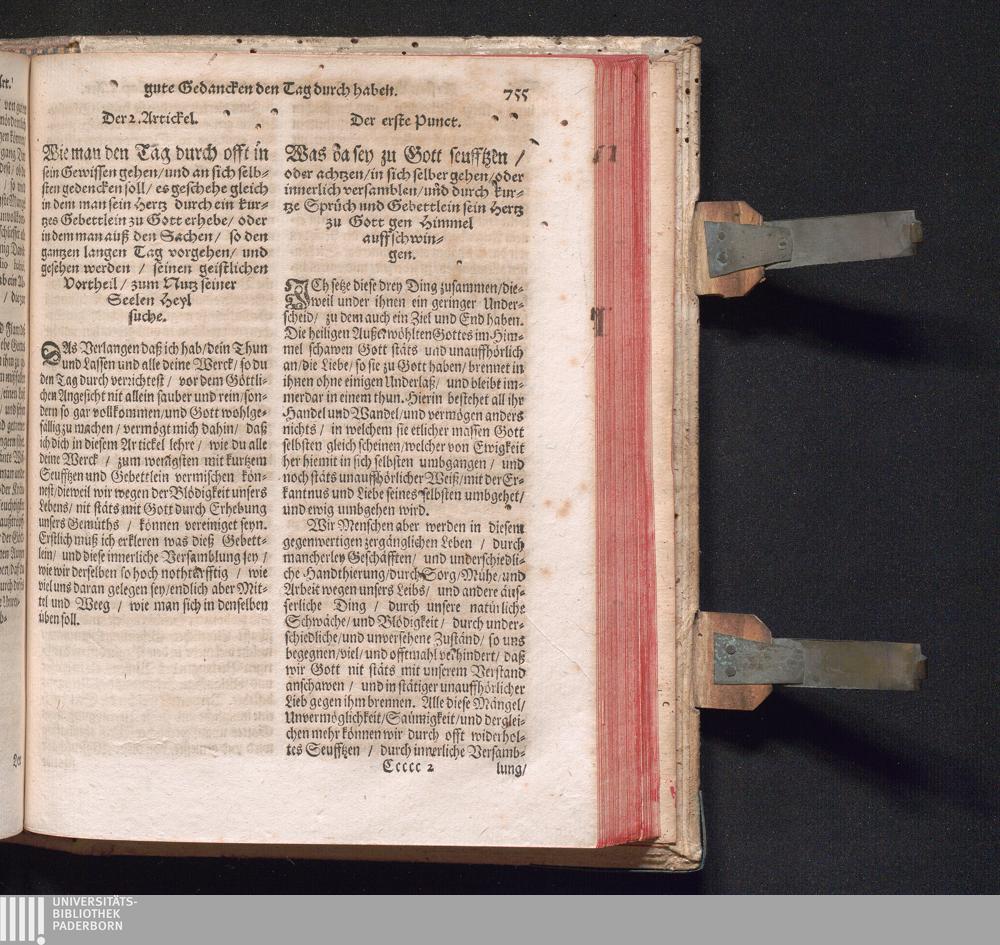 gute Gedancken den Tag durch haben.
755
Der 2. Artickel.
Wie man den Tag durch offt in
sein Gewissen gehen/und an sich selb-
sten gedencken soll/ es geschehe gleich
in dem man sein Hertz durch ein kur-
tzes Gebettlein zu Gott erhebe/ oder
in dem man auß den Sachen/ so den
gantzen langen Tag vorgehen/ und
gesehen werden / seinen geistlichen
Vortheil / zum Nutz seiner
Seelen Heyl
suche.
DAs Verlangen daß ich hab/dein Thun
und Lassen und alle deine Werck/ so du
den Tag durch verrichtest / vor dem Göttli-
chen Angesicht nit allein sauber und rein/son-
dern so gar vollkommen/und Gott wohlge-
fällig zu machen/ vermögt mich dahin/ daß
ich dich in diesem Artickel lehre/ wie du alle
deine Werck / zum wenigsten mit kurtzem
Seufftzen und Gebettlein vermischen kön-
nest/dieweil wir wegen der Blödigkeit unsers
Lebens/ nit stäts mit Gott durch Erhebung
unsers Gemüths / können vereiniget seyn.
Erstlich muß ich erkleren was dieß Gebett-
lein/ und diese innerliche Versamblung sey /
wie wir derselben so hoch nothtürfftig / wie
viel uns daran gelegen sey/endlich aber Mit-
tel und Weeg / wie man sich in denselben
üben soll.
Der erste Punct.
Was da sey zu Gott seufftzen /
oder achtzen/in sich selber gehen/oder
innerlich versamblen/und durch kur-
tze Sprüch und Gebettlein sein Hertz
zu Gott gen Himmel
auffschwin-
gen.
ICh setze diese drey Ding zusammen/die-
weil under ihnen ein geringer Under-
scheid/ zu dem auch ein Ziel und End haben.
Die heiligen Außerwöhlten Gottes im Him-
mel schawen Gott stäts und unauffhörlich
an/die Liebe/ so sie zu Gott haben/ brennet in
ihnen ohne einigen Underlaß/ und bleibt im-
merdar in einem thun. Hierin bestehet all ihr
Handel und Wandel/und vermögen anders
nichts / in welchem sie etlicher massen Gott
selbsten gleich scheinen/welcher von Ewigkeit
her hiemit in sich selbsten umbgangen / und
noch stäts unauffhörlicher Weiß/mit der Er-
kantnus und Liebe seines selbsten umbgehet/
und ewig umbgehen wird.
Wir Menschen aber werden in diesem
gegenwertigen zergänglichen Leben / durch
mancherley Geschäfften/ und underschiedli-
che Handthierung/durch Sorg/Mühe/und
Arbeit wegen unsers Leibs/ und andere äus-
serliche Ding / durch unsere natürliche
Schwäche/ und Blödigkeit/ durch under-
schiedliche/und unversehene Zuständ/ so uns
begegnen/viel/ und offtmahl verhindert/ daß
wir Gott nit stäts mit unserem Verstand
anschawen / und in stätiger unauffhörlicher
Lieb gegen ihm brennen. Alle diese Mängel/
Unvermöglichkeit/Saümigkeit/und derglei-
chen mehr können wir durch offt widerhol-
tes Seufftzen / durch innerliche Versamb-
Ccccc 2
lung/
UNIVERSITÄTS-
BIBLIOTHEK
PADERBORN